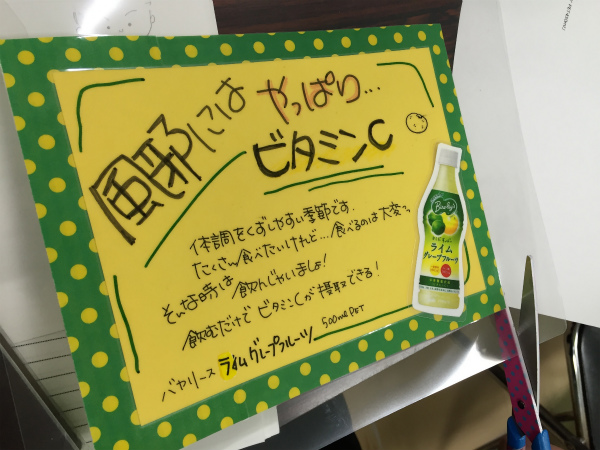 風邪にはやっぱり…
ビタミンC
体調をくずしやすい季節です。
たくさん食べたいけれど…食べるのは大変っ
そんな時は飲んじゃいましょ!
飲むだけでビタミンCが摂取できる!
バヤリース ライムグレープフルーツ 500ml PET
Bireley's
ライム
グレープフルーツ